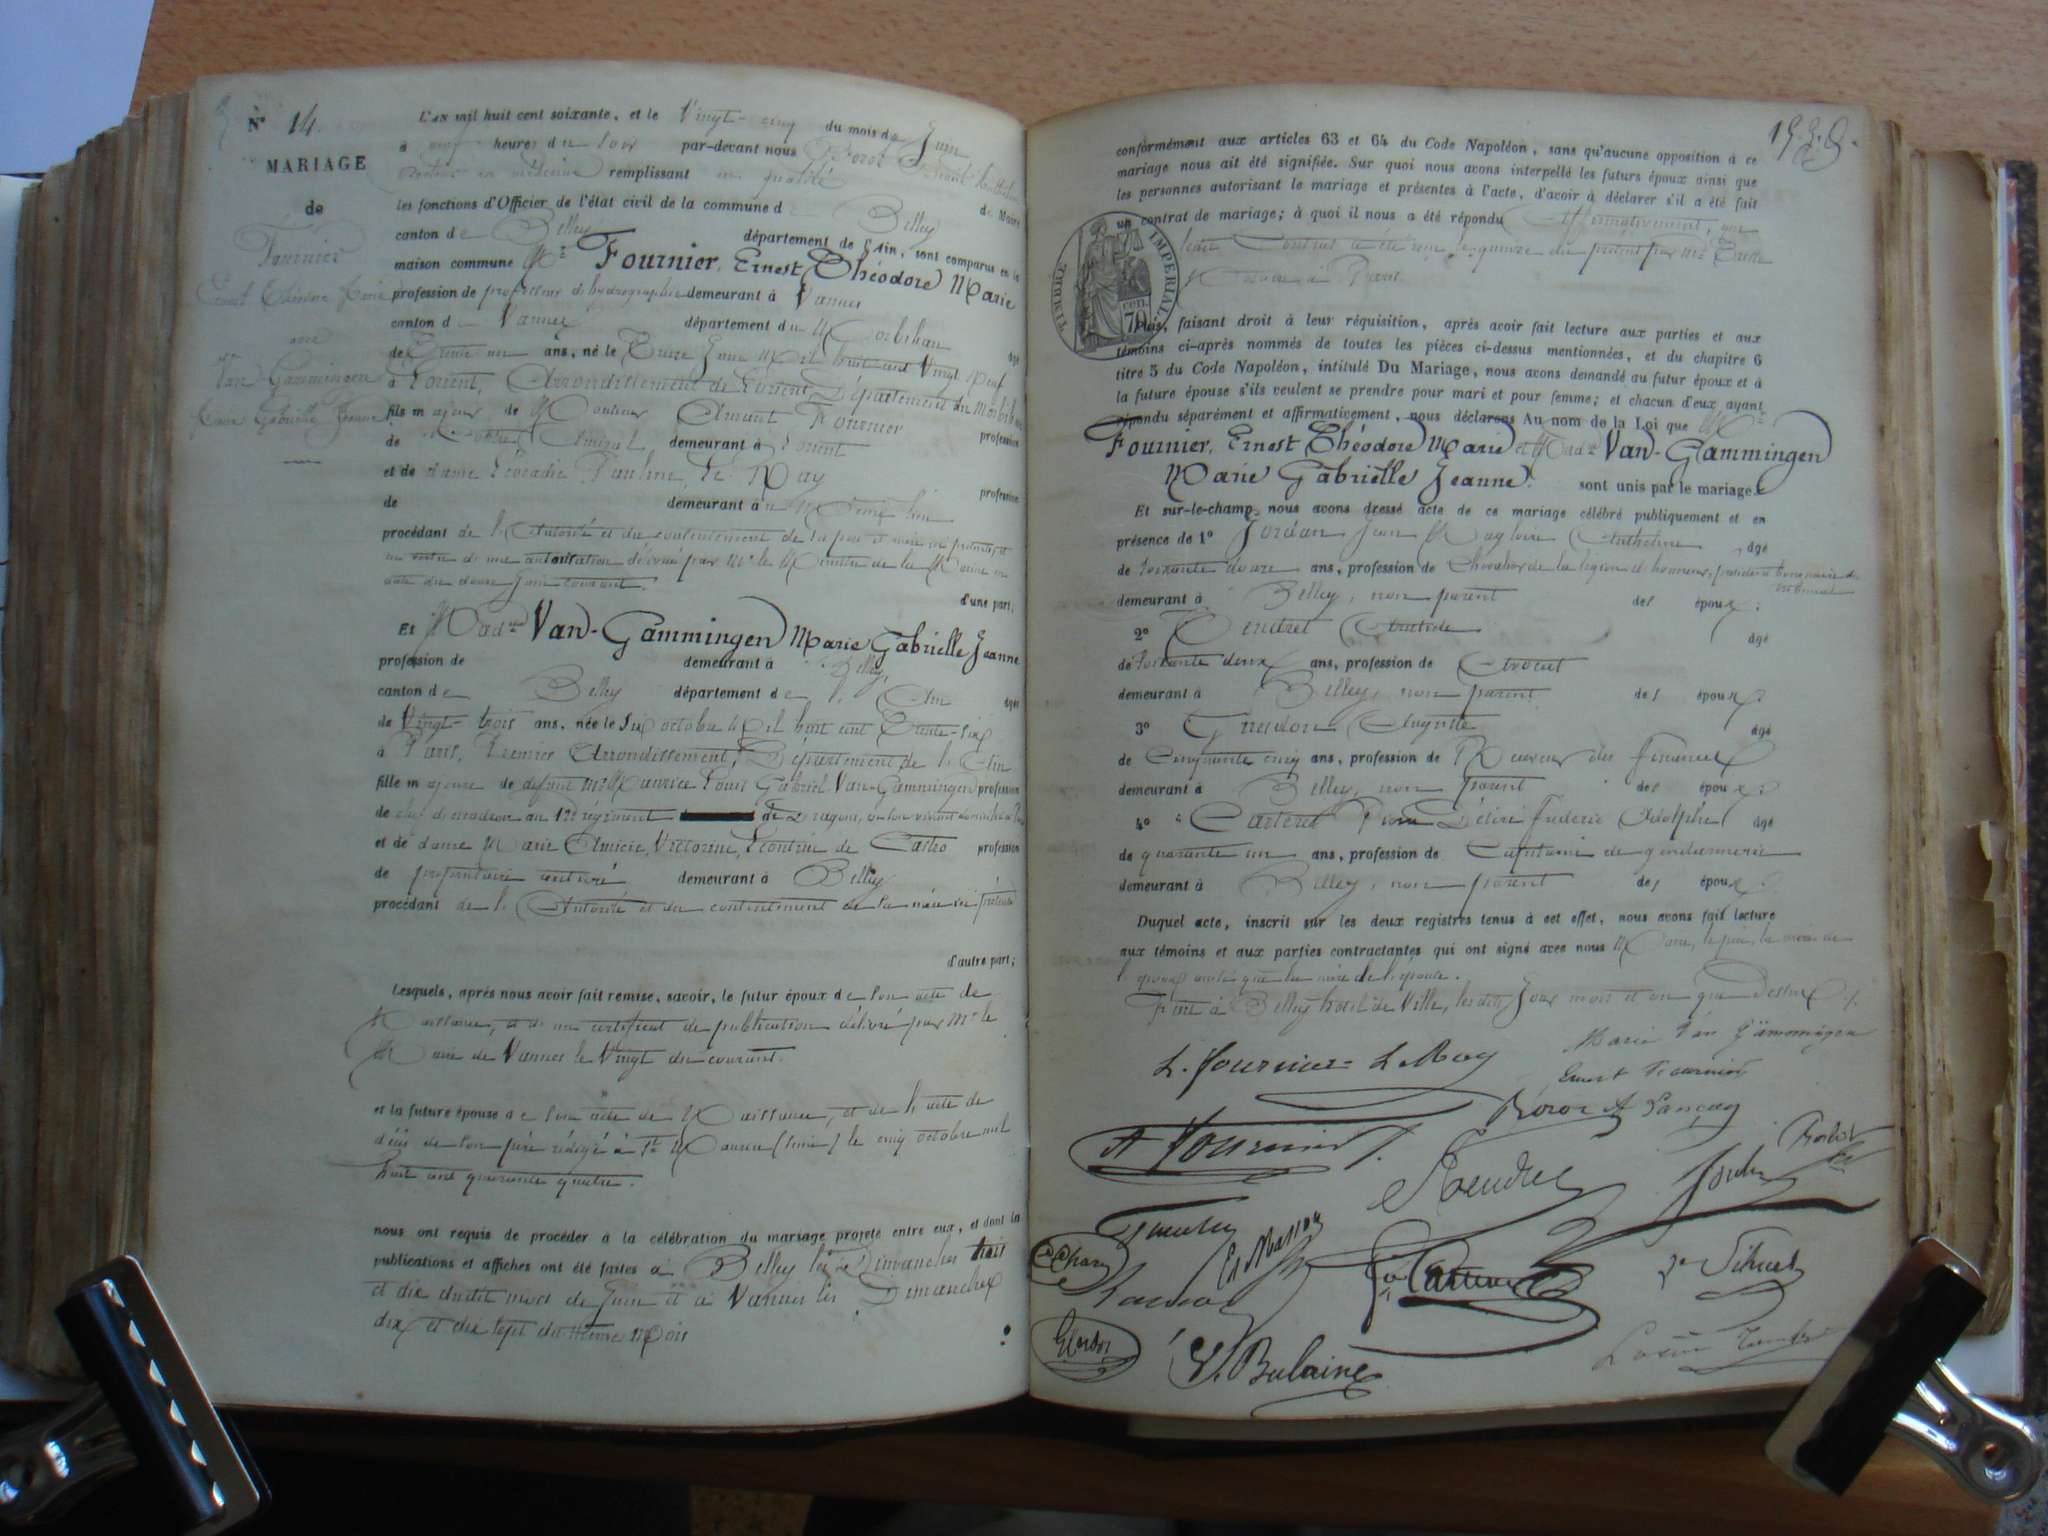 N° 14.
MARIAGE
de
Fournier
Ernest Théodore Marie
avec
Van-Gammingen
Marie Gabrielle Jeanne
L'AN mil huit cent soixante, et le Vingt-cinq du mois de Juin
à neuf heures du soir par-devant nous
Docteur en médecine remplissant en qualité de Maire
les fonctions d'Officier de l'état civil de la commune de Belley
canton de Belley département de l'Ain, sont comparus en la
maison commune Mr Fournier, Ernest Théodore Marie
profession de professeur d'hydrographie demeurant à Vannes
canton de Vannes département du Morbihan âgé
de Trente un ans, né le Treize Juin Mil huit cent Vingt Neuf
à Lorient, Arrondissement de Lorient, Département du Morbihan
fils majeur de Monsieur Amant Fournier profession
de Contre Amiral demeurant à Lorient
et de dame Léocadie Pauline, Le Ray profession
de demeurant au même lieu
procédant de l'Autorité et du consentement de ses père et mère ci présents, et
en vertu d'une autorisation délivrée par Mr le Ministre de la Marine en
date du douze Juin courant. d'une part;
Et Madelle Van-Gammingen Marie Gabrielle Jeanne
profession de demeurant à Belley,
canton de Belley département de l'Ain âgée
de Vingt-trois ans, née le Six octobre Mil huit cent Trente-six
à Paris, Premier Arrondissement, Département de l'Ain
fille majeure de défunt Mr Maurice Louis Gabriel Van-Gammingen profession
de chef d'escadron au 12e régiment de Dragons, en son vivant domicilié à
et de dame Marie Amicie, Victorine, Léontine de Castro profession
de propriétaire demeurant à Belley
procédant de l'Autorité et du consentement de sa mère ici présente
d'autre part;
Lesquels, après nous avoir fait remise, savoir, le futur époux de son acte de
Naissance, et d'un certificat de publication délivré par Mr le
Maire de Vannes le Vingt du courant.
et la future épouse de son acte de Naissance, et de l'acte de
décès de son père rédigé à St Maurice le cinq octobre mil
huit cent quarante quatre.
nous ont requis de procéder à la célébration du mariage projeté entre eux, et dont les
publications et affiches ont été faites à Belley les Dimanches trois
et dix dudit mois de Juin et à Vannes les Dimanches
dix et dix sept du même Mois
conformément aux articles 63 et 64 du Code Napoléon, sans qu'aucune opposition à ce
mariage nous ait été signifiée. Sur quoi nous avons interpellé les futurs époux ainsi que
les personnes autorisant le mariage et présentes à l'acte, d'avoir à déclarer s'il a été fait
un contrat de mariage; à quoi il nous a été répondu Affirmativement, que
Contrat a été reçu le quinze du présent par Me
Notaire à Paris.
TIMBRE IMPERIAL
70 cen.
Puis, faisant droit à leur réquisition, après avoir fait lecture aux parties et aux
témoins ci-après nommés de toutes les pièces ci-dessus mentionnées, et du chapitre 6
titre 5 du Code Napoléon, intitulé Du Mariage, nous avons demandé au futur époux et à
la future épouse s'ils veulent se prendre pour mari et pour femme; et chacun d'eux ayant
répondu séparément et affirmativement, nous déclarons Au nom de la Loi que Mr
Fournier, Ernest Théodore Marie et Madlle Van-Gammingen
Marie Gabrielle Jeanne. sont unis par le mariage.
Et sur-le-champ, nous avons dressé acte de ce mariage célébré publiquement et en
présence de 1° Jordan Jean Magloire Anthelme âgé
de soixante douze ans, profession de Chevalier de la légion d'honneur, président honoraire du tribunal
demeurant à Belley, non parent des époux;
2° Tendret Aristide âgé
de soixante deux ans, profession de Avocat
demeurant à Belley, non parent des époux;
3° Auguste âgé
de Cinquante cinq ans, profession de Receveur des finances
demeurant à Belley, non parent des époux;
4° Carteret Désiré Fréderic Adolphe âgé
de quarante un ans, profession de Capitaine de gendarmerie
demeurant à Belley, non parent des époux;
Duquel acte, inscrit sur les deux registres tenus à cet effet, nous avons fait lecture
aux témoins et aux parties contractantes qui ont signé avec nous Maire, le père, la mère de
l'époux ainsi que la mère de l'épouse.
Fait à Belley hôtel de Ville, lesdits Jour mois et an que dessus.
Marie Van Gammingen
L. Fournier Le Ray
Ernest Fournier
A Fournier
Tendret
Jordan
Ed. Masson
Carteret
V. Bulaine